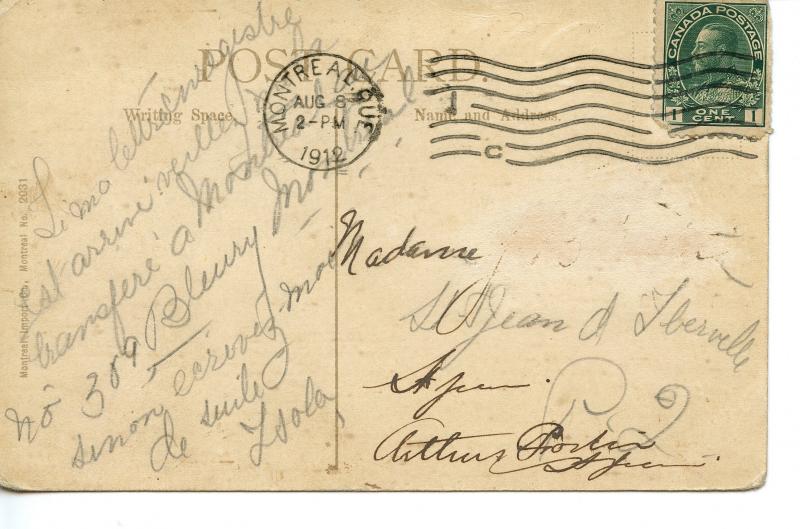 POST CARD.
Writing Space.
Name and Address.
MONTREAL, QUE
AUG 8
2-PM
1912
C
CANADA POSTAGE
1 ONE CENT 1
Montreal Import Co., Montreal No. 2031
Si ma lettre enregistre
est arrivé veuillez
transferé a Montreal
no 309 Bleury Montreal
sinon ecrivez moi
de suite
Isola
Madame
St Jean d Iberville
St Jean.
P-2
Arthur
St Jean.